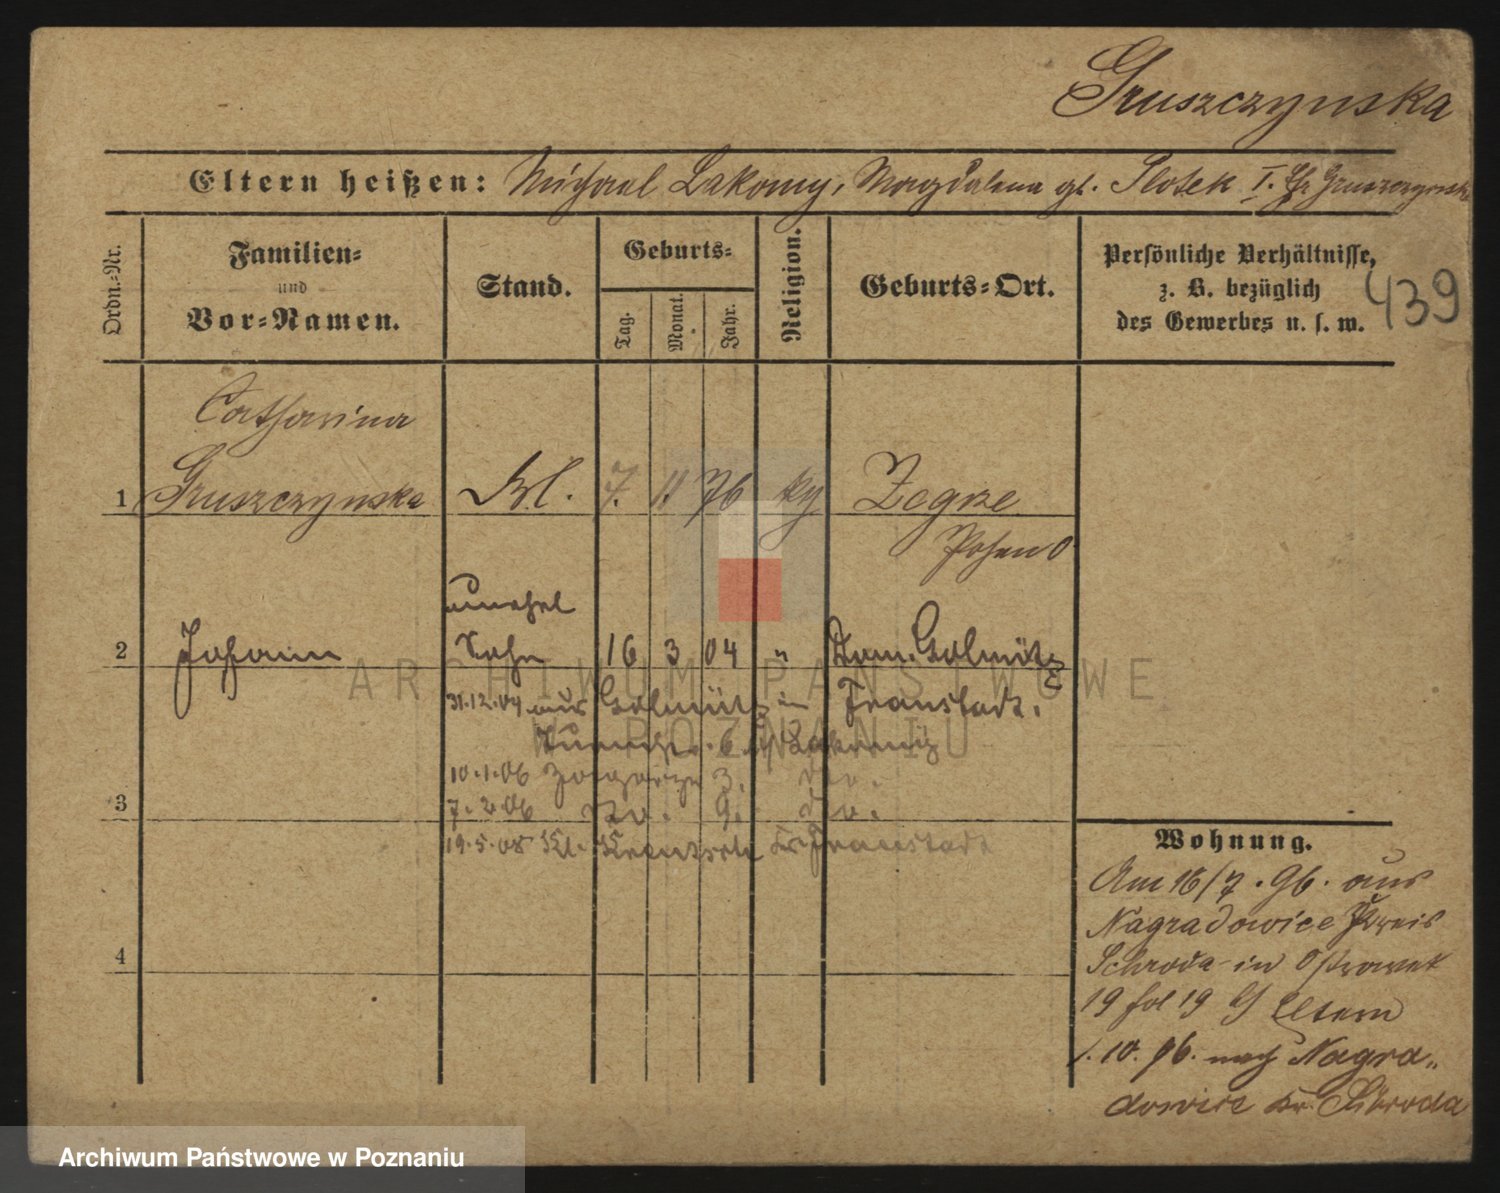 Gruszczynska
Eltern heißen: Michael Lakomy, Magdalena gb. Slotek I. Gruszczynska
Ordn.-Nr.
Familien-
und
Vor-Namen.
Stand.
Geburts-
Tag.
Monat.
Jahr.
Religion.
Geburts-Ort.
Persönliche Verhältnisse,
z. B. bezüglich
des Gewerbes u. s. w.
439
Catharina
1 Gruszczynska 7. 11 76 Zegrze
Posen O
unehel
2 Johann Sohn 16 3 04 " Dom. Golmütz
31.12.04 aus Golmütz in Fraustadt.
6
10.1.06 3. do.
7.2.06 do. 9. do.
3
19.5.08 Kl. Kr. Fraustadt
Wohnung.
Am 16/7. 96. aus
Nagradowice Kreis
Schroda in Ostrowek
19 fol 19 b/ Eltern
1. 10. 96. nach Nagra-
dowice Kr. Schroda
4
ARCHIWUM PAŃSTWOWE
W POZNANIU
Archiwum Państwowe w Poznaniu